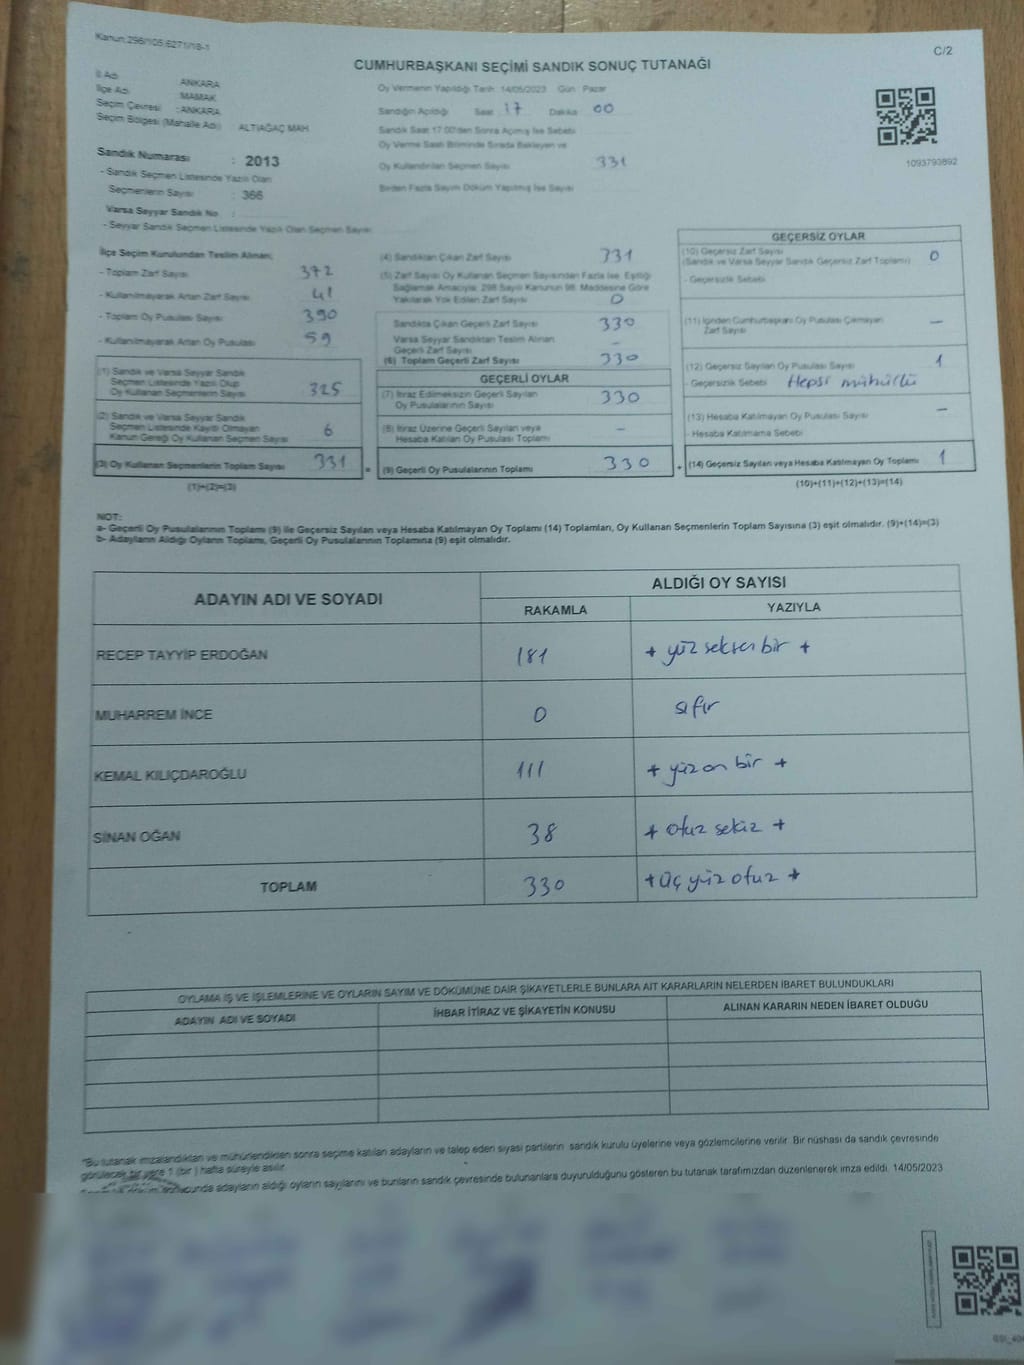 Kanun:298/105;6271/18-1
C/2
CUMHURBAŞKANI SEÇİMİ SANDIK SONUÇ TUTANAĞI
İl Adı : ANKARA
İlçe Adı : MAMAK
Seçim Çevresi : ANKARA
Seçim Bölgesi (Mahalle Adı) ALTIAĞAÇ MAH
Sandık Numarası : 2013
- Sandık Seçmen Listesinde Yazılı Olan
Seçmenlerin Sayısı : 366
Varsa Seyyar Sandık No :
- Seyyar Sandık Seçmen Listesinde Yazılı Olan Seçmen Sayısı:
Oy Vermenin Yapıldığı Tarih: 14/05/2023 Gün : Pazar
Sandığın Açıldığı Saat 17 Dakika 00
Sandık Saat 17:00'den Sonra Açılmış İse Sebebi
Oy Verme Saati Bitiminde Sırada Bekleyen ve
Oy Kullandırılan Seçmen Sayısı 331
Birden Fazla Sayım Döküm Yapılmış İse Sayısı
1093793892
İlçe Seçim Kurulundan Teslim Alınan;
- Toplam Zarf Sayısı 372
- Kullanılmayarak Artan Zarf Sayısı 41
- Toplam Oy Pusulası Sayısı 390
- Kullanılmayarak Artan Oy Pusulası 59
(1) Sandık ve Varsa Seyyar Sandık
Seçmen Listesinde Yazılı Olup
Oy Kullanan Seçmenlerin Sayısı 325
(2) Sandık ve Varsa Seyyar Sandık
Seçmen Listesinde Kayıtlı Olmayan
Kanun Gereği Oy Kullanan Seçmen Sayısı 6
(3) Oy Kullanan Seçmenlerin Toplam Sayısı 331
(1)+(2)=(3)
(4) Sandıktan Çıkan Zarf Sayısı 331
(5) Zarf Sayısı Oy Kullanan Seçmen Sayısından Fazla İse, Eşitliği
Sağlamak Amacıyla, 298 Sayılı Kanunun 98. Maddesine Göre
Yakılarak Yok Edilen Zarf Sayısı 0
Sandıkta Çıkan Geçerli Zarf Sayısı 330
Varsa Seyyar Sandıktan Teslim Alınan
Geçerli Zarf Sayısı -
(6) Toplam Geçerli Zarf Sayısı 330
GEÇERLİ OYLAR
(7) İtiraz Edilmeksizin Geçerli Sayılan
Oy Pusulalarının Sayısı 330
(8) İtiraz Üzerine Geçerli Sayılan veya
Hesaba Katılan Oy Pusulası Toplamı -
= (9) Geçerli Oy Pusulalarının Toplamı 330
GEÇERSİZ OYLAR
(10) Geçersiz Zarf Sayısı 0
(Sandık ve Varsa Seyyar Sandık Geçersiz Zarf Toplamı)
- Geçersizlik Sebebi
(11) İçinden Cumhurbaşkanı Oy Pusulası Çıkmayan
Zarf Sayısı -
(12) Geçersiz Sayılan Oy Pusulası Sayısı 1
- Geçersizlik Sebebi Hepsi mühürlü
(13) Hesaba Katılmayan Oy Pusulası Sayısı -
- Hesaba Katılmama Sebebi
+ (14) Geçersiz Sayılan veya Hesaba Katılmayan Oy Toplamı 1
(10)+(11)+(12)+(13)=(14)
NOT:
a- Geçerli Oy Pusulalarının Toplamı (9) ile Geçersiz Sayılan veya Hesaba Katılmayan Oy Toplamı (14) Toplamları, Oy Kullanan Seçmenlerin Toplam Sayısına (3) eşit olmalıdır. (9)+(14)=(3)
b- Adayların Aldığı Oyların Toplamı, Geçerli Oy Pusulalarının Toplamına (9) eşit olmalıdır.
ADAYIN ADI VE SOYADI ALDIĞI OY SAYISI
RAKAMLA YAZIYLA
RECEP TAYYİP ERDOĞAN 181 + yüz seksen bir +
MUHARREM İNCE 0 sıfır
KEMAL KILIÇDAROĞLU 111 + yüz on bir +
SİNAN OĞAN 38 + otuz sekiz +
TOPLAM 330 + üç yüz otuz +
OYLAMA İŞ VE İŞLEMLERİNE VE OYLARIN SAYIM VE DÖKÜMÜNE DAİR ŞİKAYETLERLE BUNLARA AİT KARARLARIN NELERDEN İBARET BULUNDUKLARI
ADAYIN ADI VE SOYADI İHBAR İTİRAZ VE ŞİKAYETİN KONUSU ALINAN KARARIN NEDEN İBARET OLDUĞU
*Bu tutanak imzalandıktan ve mühürlendikten sonra seçime katılan adayların ve talep eden siyasi partilerin sandık kurulu üyelerine veya gözlemcilerine verilir. Bir nüshası da sandık çevresinde
görülecek bir yere 1 (bir) hafta süreyle asılır.
sonucunda adayların aldığı oyların sayılarını ve bunların sandık çevresinde bulunanlara duyurulduğunu gösteren bu tutanak tarafımızdan düzenlenerek imza edildi. 14/05/2023